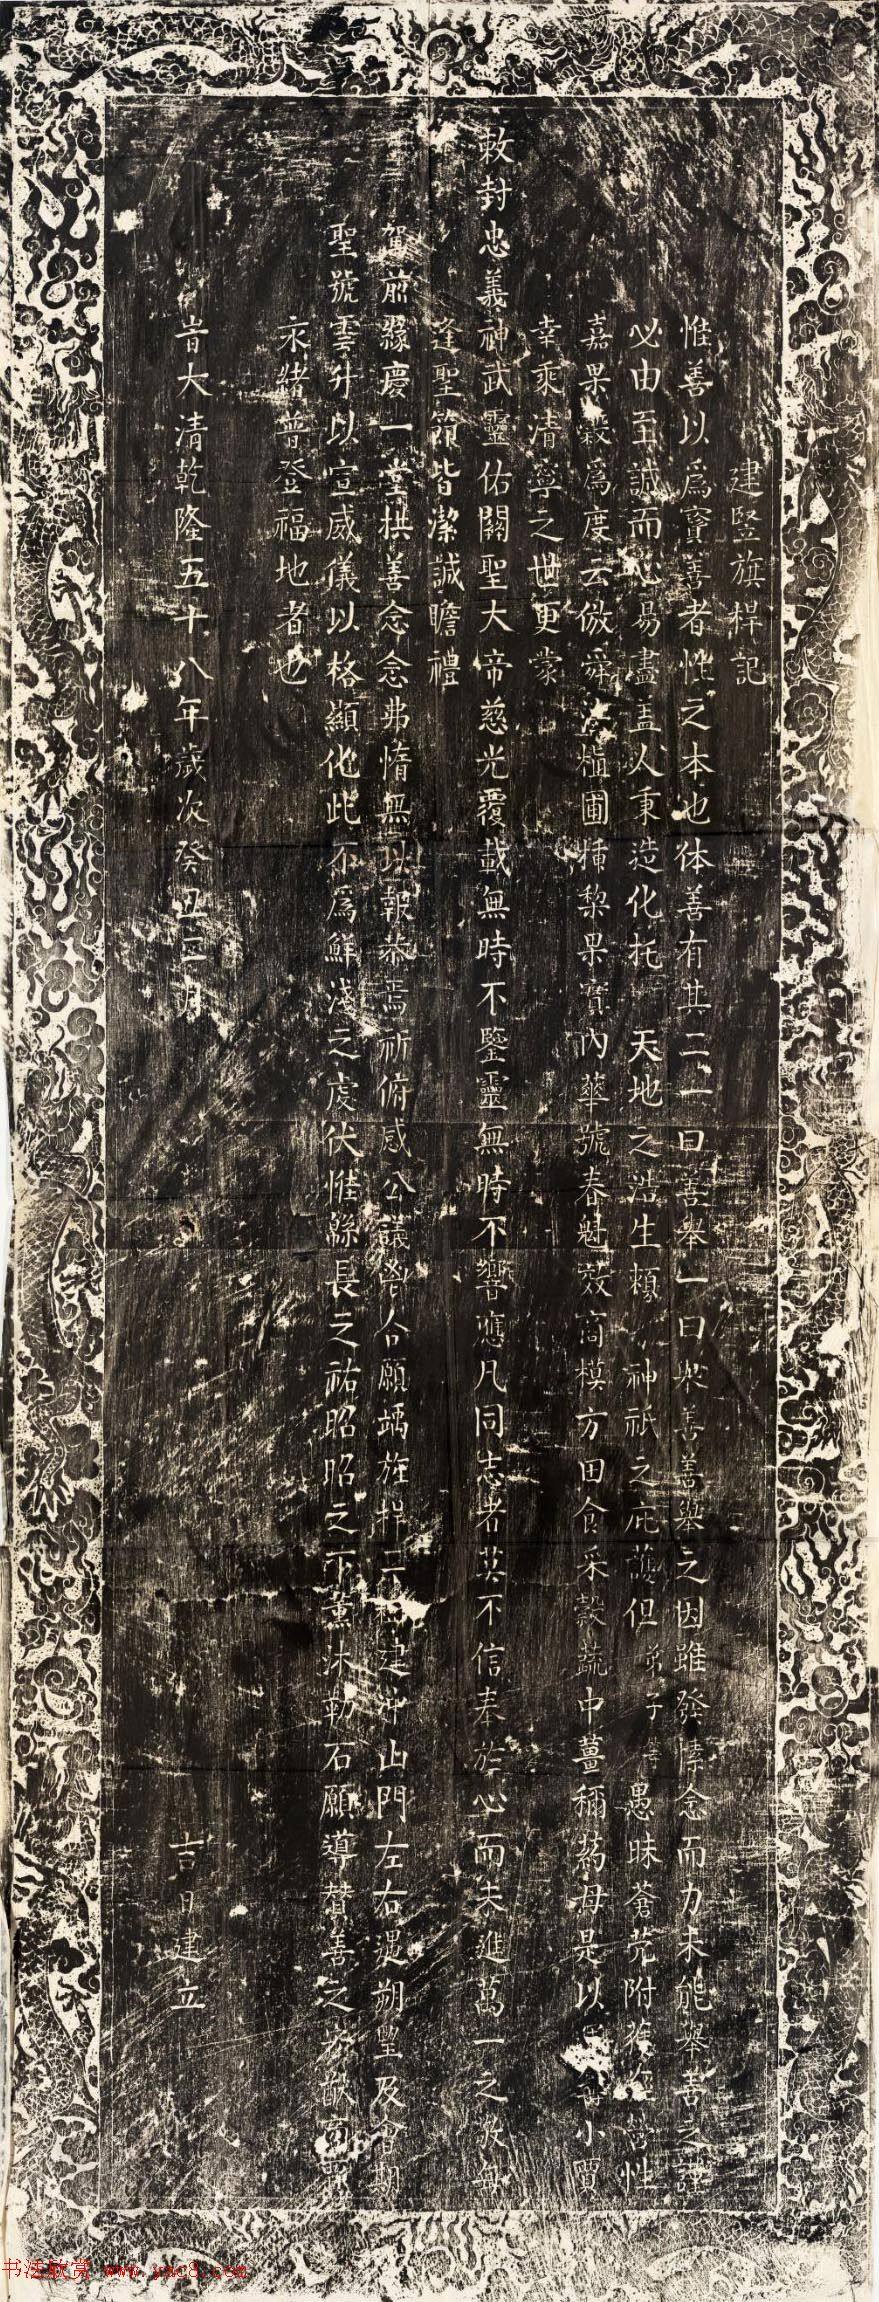 建竪旗桿記
惟善以為寶善者性之本也体善有其二一曰善舉一曰衆善善舉之因雖發悽念而力未能舉善之謹
必由至誠而心易盡盖人秉造化托天地之浩生賴神祇之庇護但弟子等愚昧蒼茫附
嘉果穀為度云倣舜法植圃種梨果實內華號春魁效商模方田食采穀蔬中薑稱蒭母是以小買
幸乘清寧之世更蒙
敕封忠義神武靈佑關聖大帝慈光覆載無時不鑒靈無時不響應凡同志者莫不信奉於心而未進萬一之敬每
逢聖節皆潔誠瞻禮
駕前緣慶一堂拱善念念弗惰無以報恭焉祈俯感公議合願竭旌桿二建於山門左右遇朔望及會期
聖號雲升以宣威儀以格顯化此不為鮮淺之虔伏惟緜長之祐昭昭之下薰沐勒石願導賛善之
永緒普登福地者也
旹大清乾隆五十八年歲次癸丑三月 吉日建立
书法欣赏 www.yac8.com